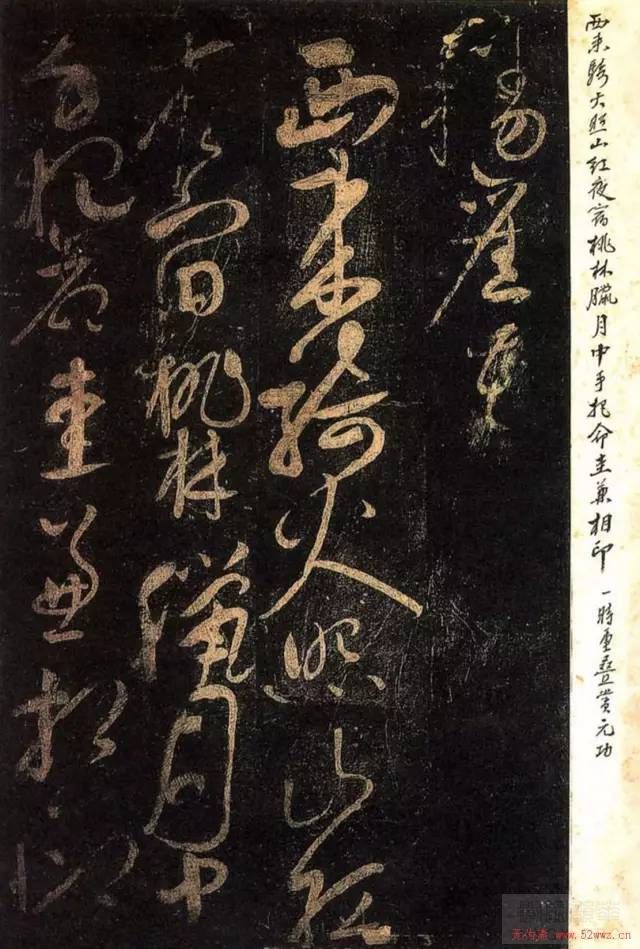 西来骑火照山红夜宿桃林臘月中手把命圭兼相印 一時重叠賞元功
西来骑火照山红
夜宿桃林臘月中
手把命圭兼相印
无为斋 www.52wwz.cn